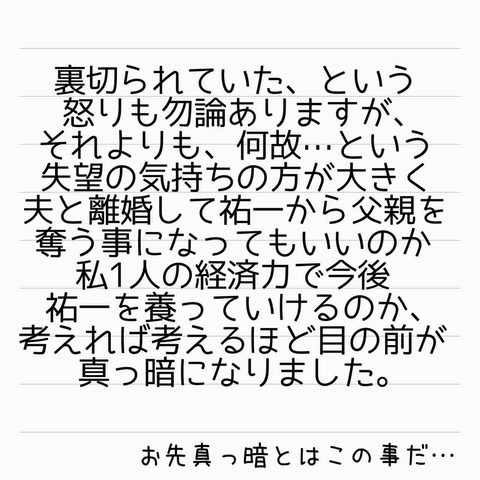 裏切られていた、という
怒りも勿論ありますが、
それよりも、何故…という
失望の気持ちの方が大きく
夫と離婚して祐一から父親を
奪う事になってもいいのか
私1人の経済力で今後
祐一を養っていけるのか、
考えれば考えるほど目の前が
真っ暗になりました。
お先真っ暗とはこの事だ…